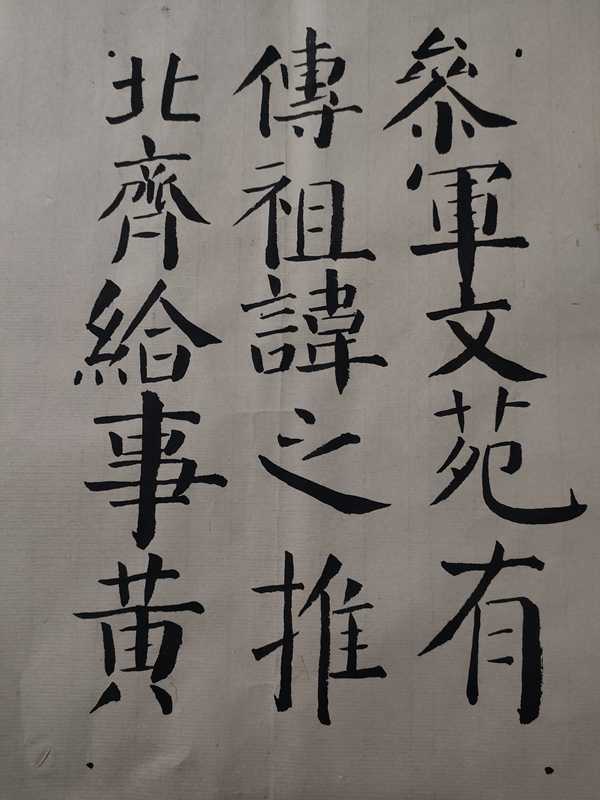 參軍文苑有
傳祖諱之推
北齊給事黄